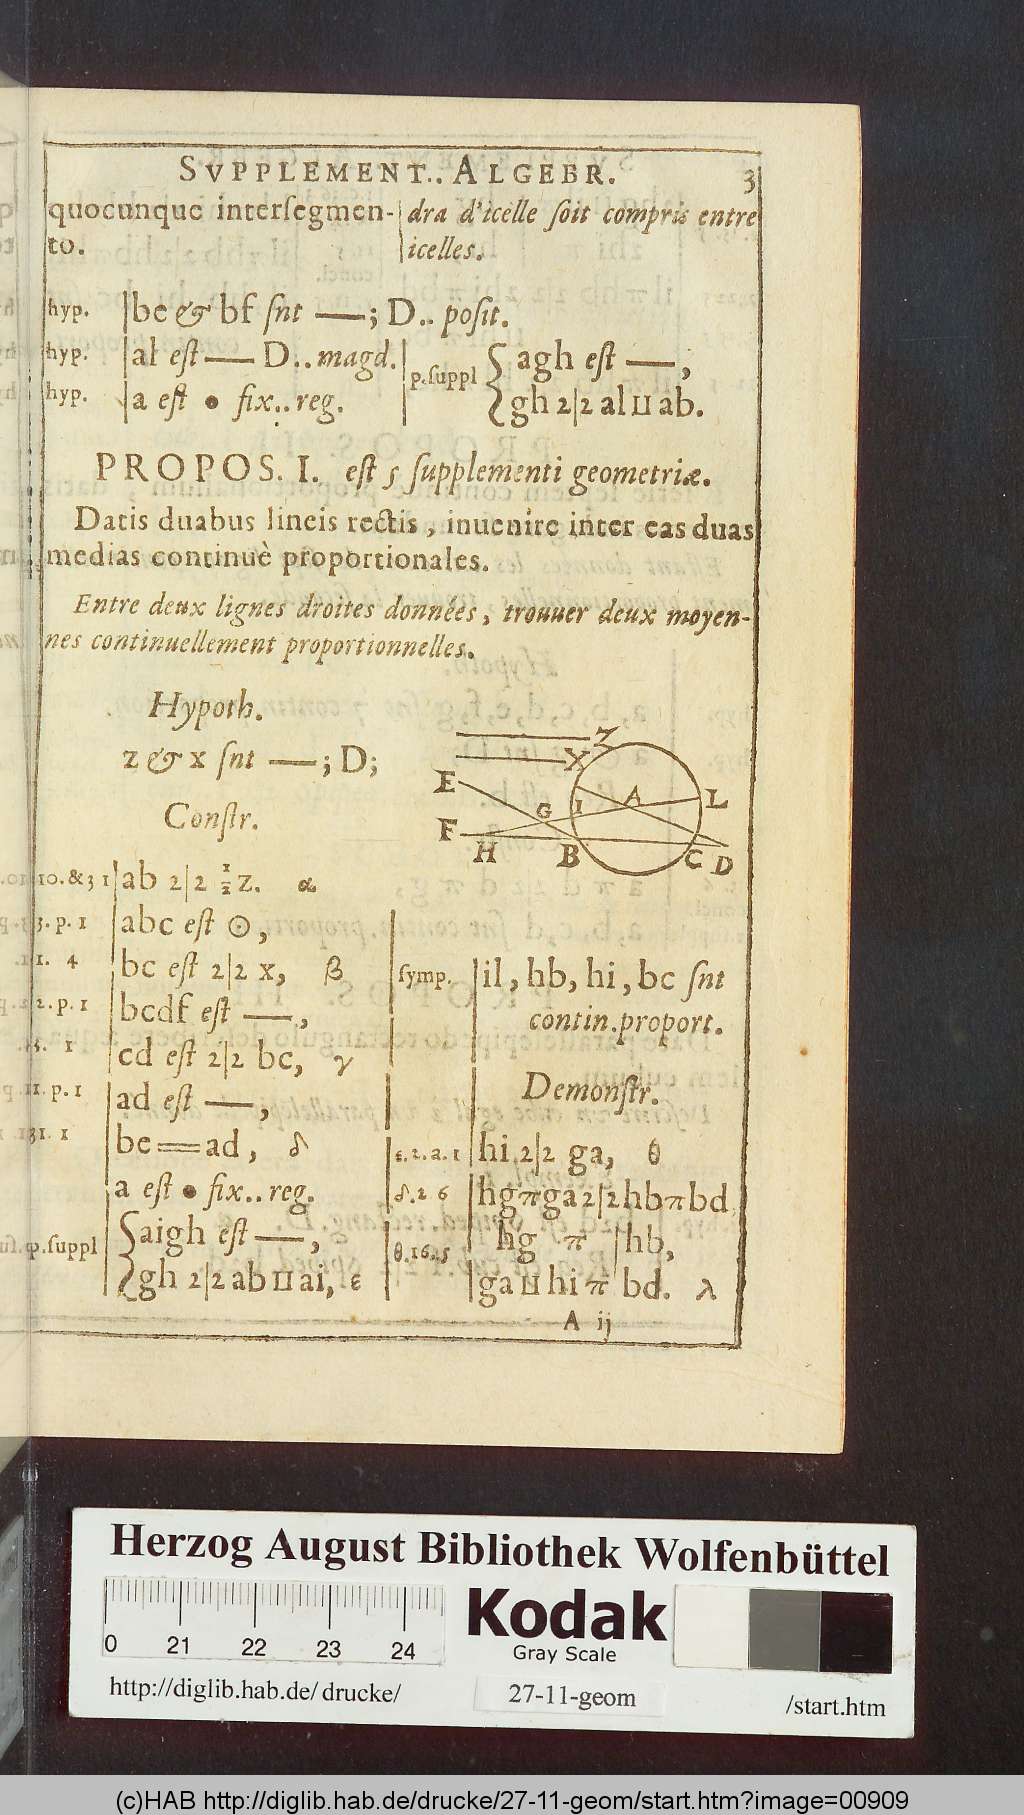 SVPPLEMENT.. ALGEBR. 3
quocunque interſegmen-
to.
dra d'icelle ſoit compris entre
icelles.
hyp. be & bf ſnt —; D.. poſit.
hyp. al eſt — D.. magd.
hyp. a eſt • fix.. reg.
p.ſuppl { agh eſt —,
gh 2|2 al ⊔ ab.
PROPOS. I. eſt 5 ſupplementi geometriæ.
Datis duabus lineis rectis, inuenire inter eas duas
medias continuè proportionales.
Entre deux lignes droites données, trouuer deux moyen-
nes continuellement proportionnelles.
Hypoth.
z & x ſnt —; D;
Conſtr.
Z
X
E
G I A L
F
H B C D
10. & 31 ab 2|2 ½ z. α
3. p. 1 abc eſt ⊙,
1. 4 bc eſt 2|2 x, β
2. p. 1 bcdf eſt —,
3. 1 cd eſt 2|2 bc, γ
11. p. 1 ad eſt —,
31. 1 be = ad, δ
a eſt • fix.. reg.
p.ſuppl { aigh eſt —,
gh 2|2 ab ⊔ ai, ε
ſymp. il, hb, hi, bc ſnt
contin. proport.
Demonſtr.
ε. 2. a. 1 hi 2|2 ga, θ
δ. 2 6 hg π ga 2|2 hb π bd
θ. 16. 5 hg π hb,
ga ⊔ hi π bd. λ
A ij
Herzog August Bibliothek Wolfenbüttel
0 21 22 23 24
Kodak
Gray Scale
http://diglib.hab.de/drucke/ 27-11-geom /start.htm
(c)HAB http://diglib.hab.de/drucke/27-11-geom/start.htm?image=00909